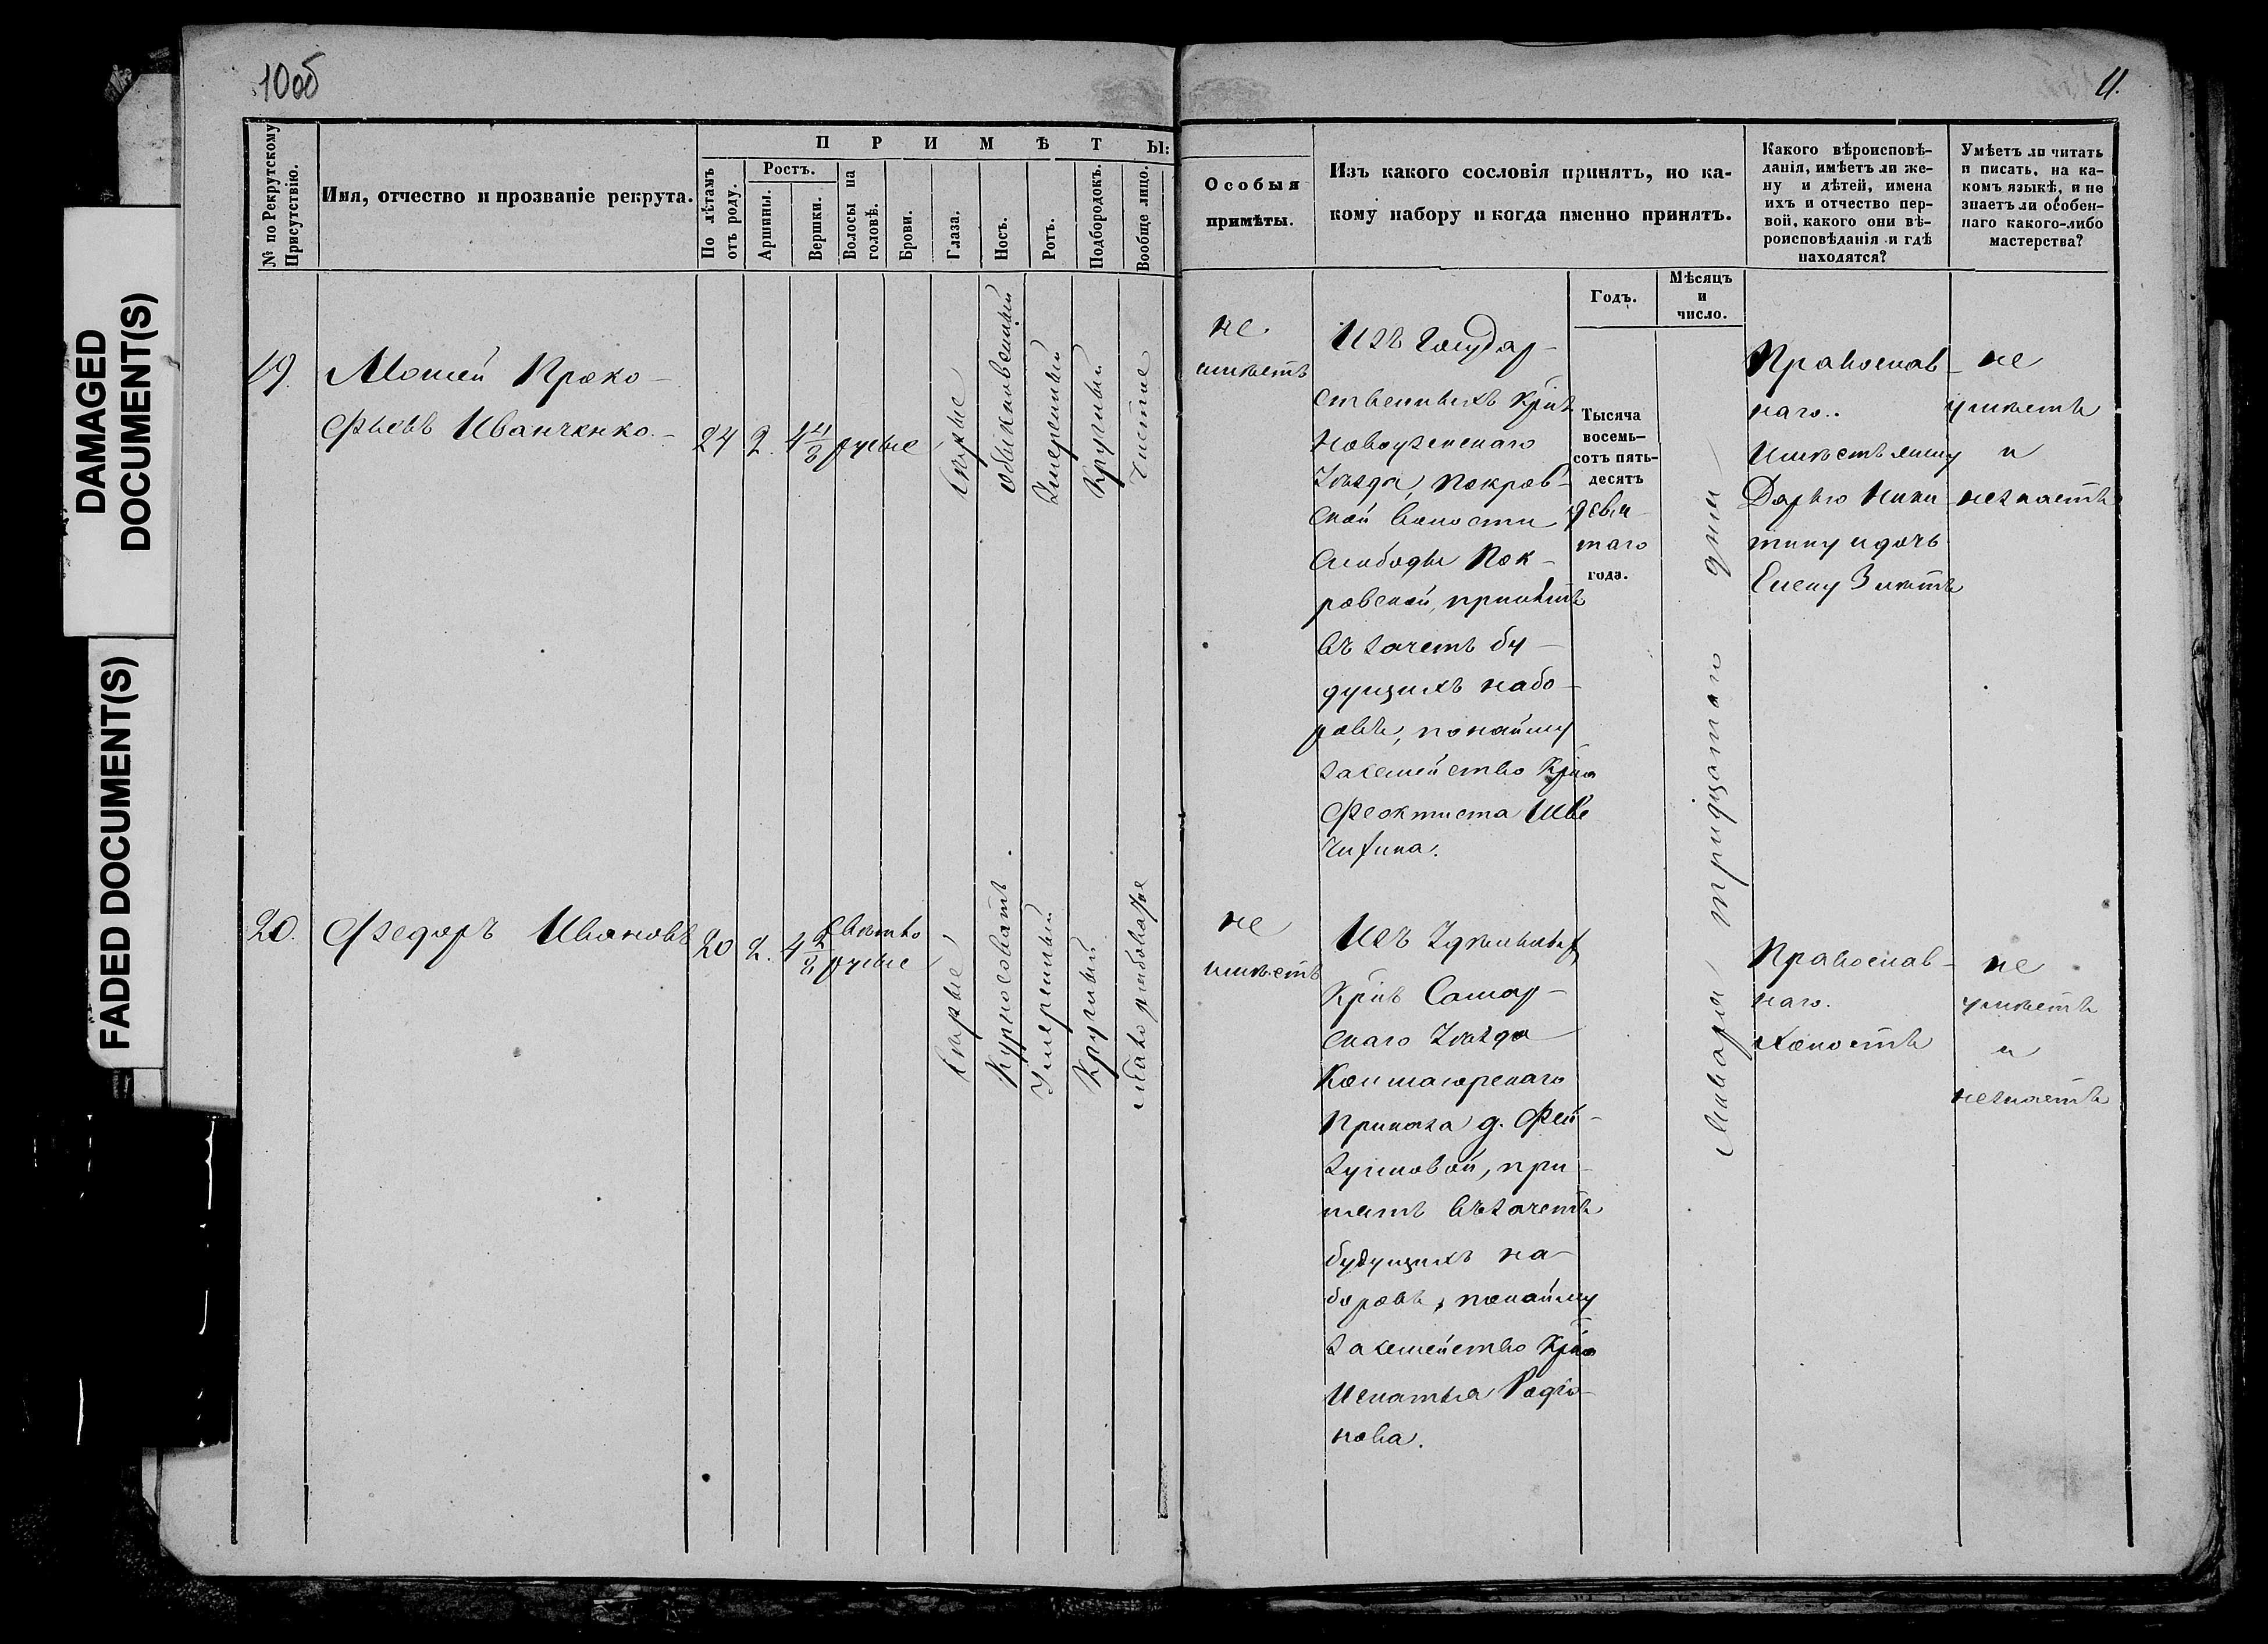 10об
11.
DAMAGED
DOCUMENT(S)
FADED DOCUMENT(S)
№ по Рекрутскому
Присутствію.
Имя, отчество и прозваніе рекрута.
ПРИМѢТЫ:
По лѣтамъ
отъ роду.
Ростъ.
Аршины.
Вершки.
Волосы на
головѣ.
Брови.
Глаза.
Носъ.
Ротъ.
Подбородокъ.
Вообще лицо.
Особыя
примѣты.
Изъ какого сословія принятъ, по ка-
кому набору и когда именно принятъ.
Годъ.
Мѣсяцъ
и
число.
Какого вѣроисповѣ-
данія, имѣетъ ли же-
ну и дѣтей, имена
ихъ и отчество пер-
вой, какого они вѣ-
роисповѣданія и гдѣ
находятся?
Умѣетъ ли читать
и писать, на ка-
комъ языкѣ, и не
знаетъ ли особен-
наго какого-либо
мастерства?
19.
Мосей Проко-
фьевъ Иванченко.-
24
2.
4 4/8
русые
Сѣрые
Обыкновенный
Умеренный
Круглый
Чистое
не
имѣетъ
Изъ Государ-
ственныхъ Крнъ
Новоузенскаго
Уѣзда, Покров-
ской волости
Слободы Пок-
ровской, принятъ
въ зачетъ бу-
дущихъ набо-
ровъ, понайму
засемейство Крна
Феоктиста
Тысяча
восемь-
сотъ пять-
десятъ
девя
таго
года.
Января тридцатого дня
Православ-
наго.
Имѣетъ жену
Дарью Ники
тину и дочь
Елену 3 лѣтъ
не
умѣетъ
и
незнаетъ
20.
Федоръ Ивановъ
20
2.
4 2/8
Свѣтло
русые
Сѣрые
Курносоватъ
Умеренный
Круглый
не
имѣетъ
Изъ Удѣльныхъ
Крнъ Самар-
скаго Уѣзда
Приказа д.
при-
нятъ въ зачетъ
будущихъ на-
боровъ, понайму
засемейство Крна
Игнатья Родіо-
нова.
Православ-
наго.
Холостъ
не
умѣетъ
и
незнаетъ